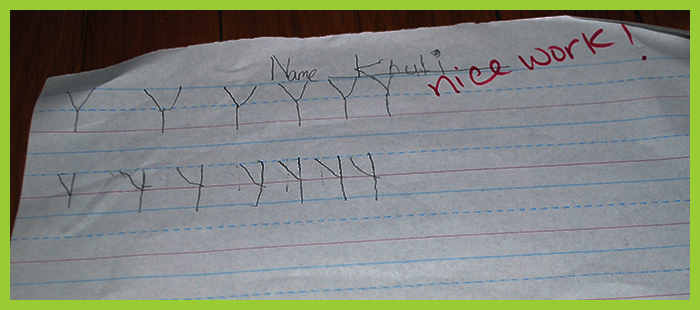 Name nice work!
Y Y Y Y Y Y
y y y y y y y